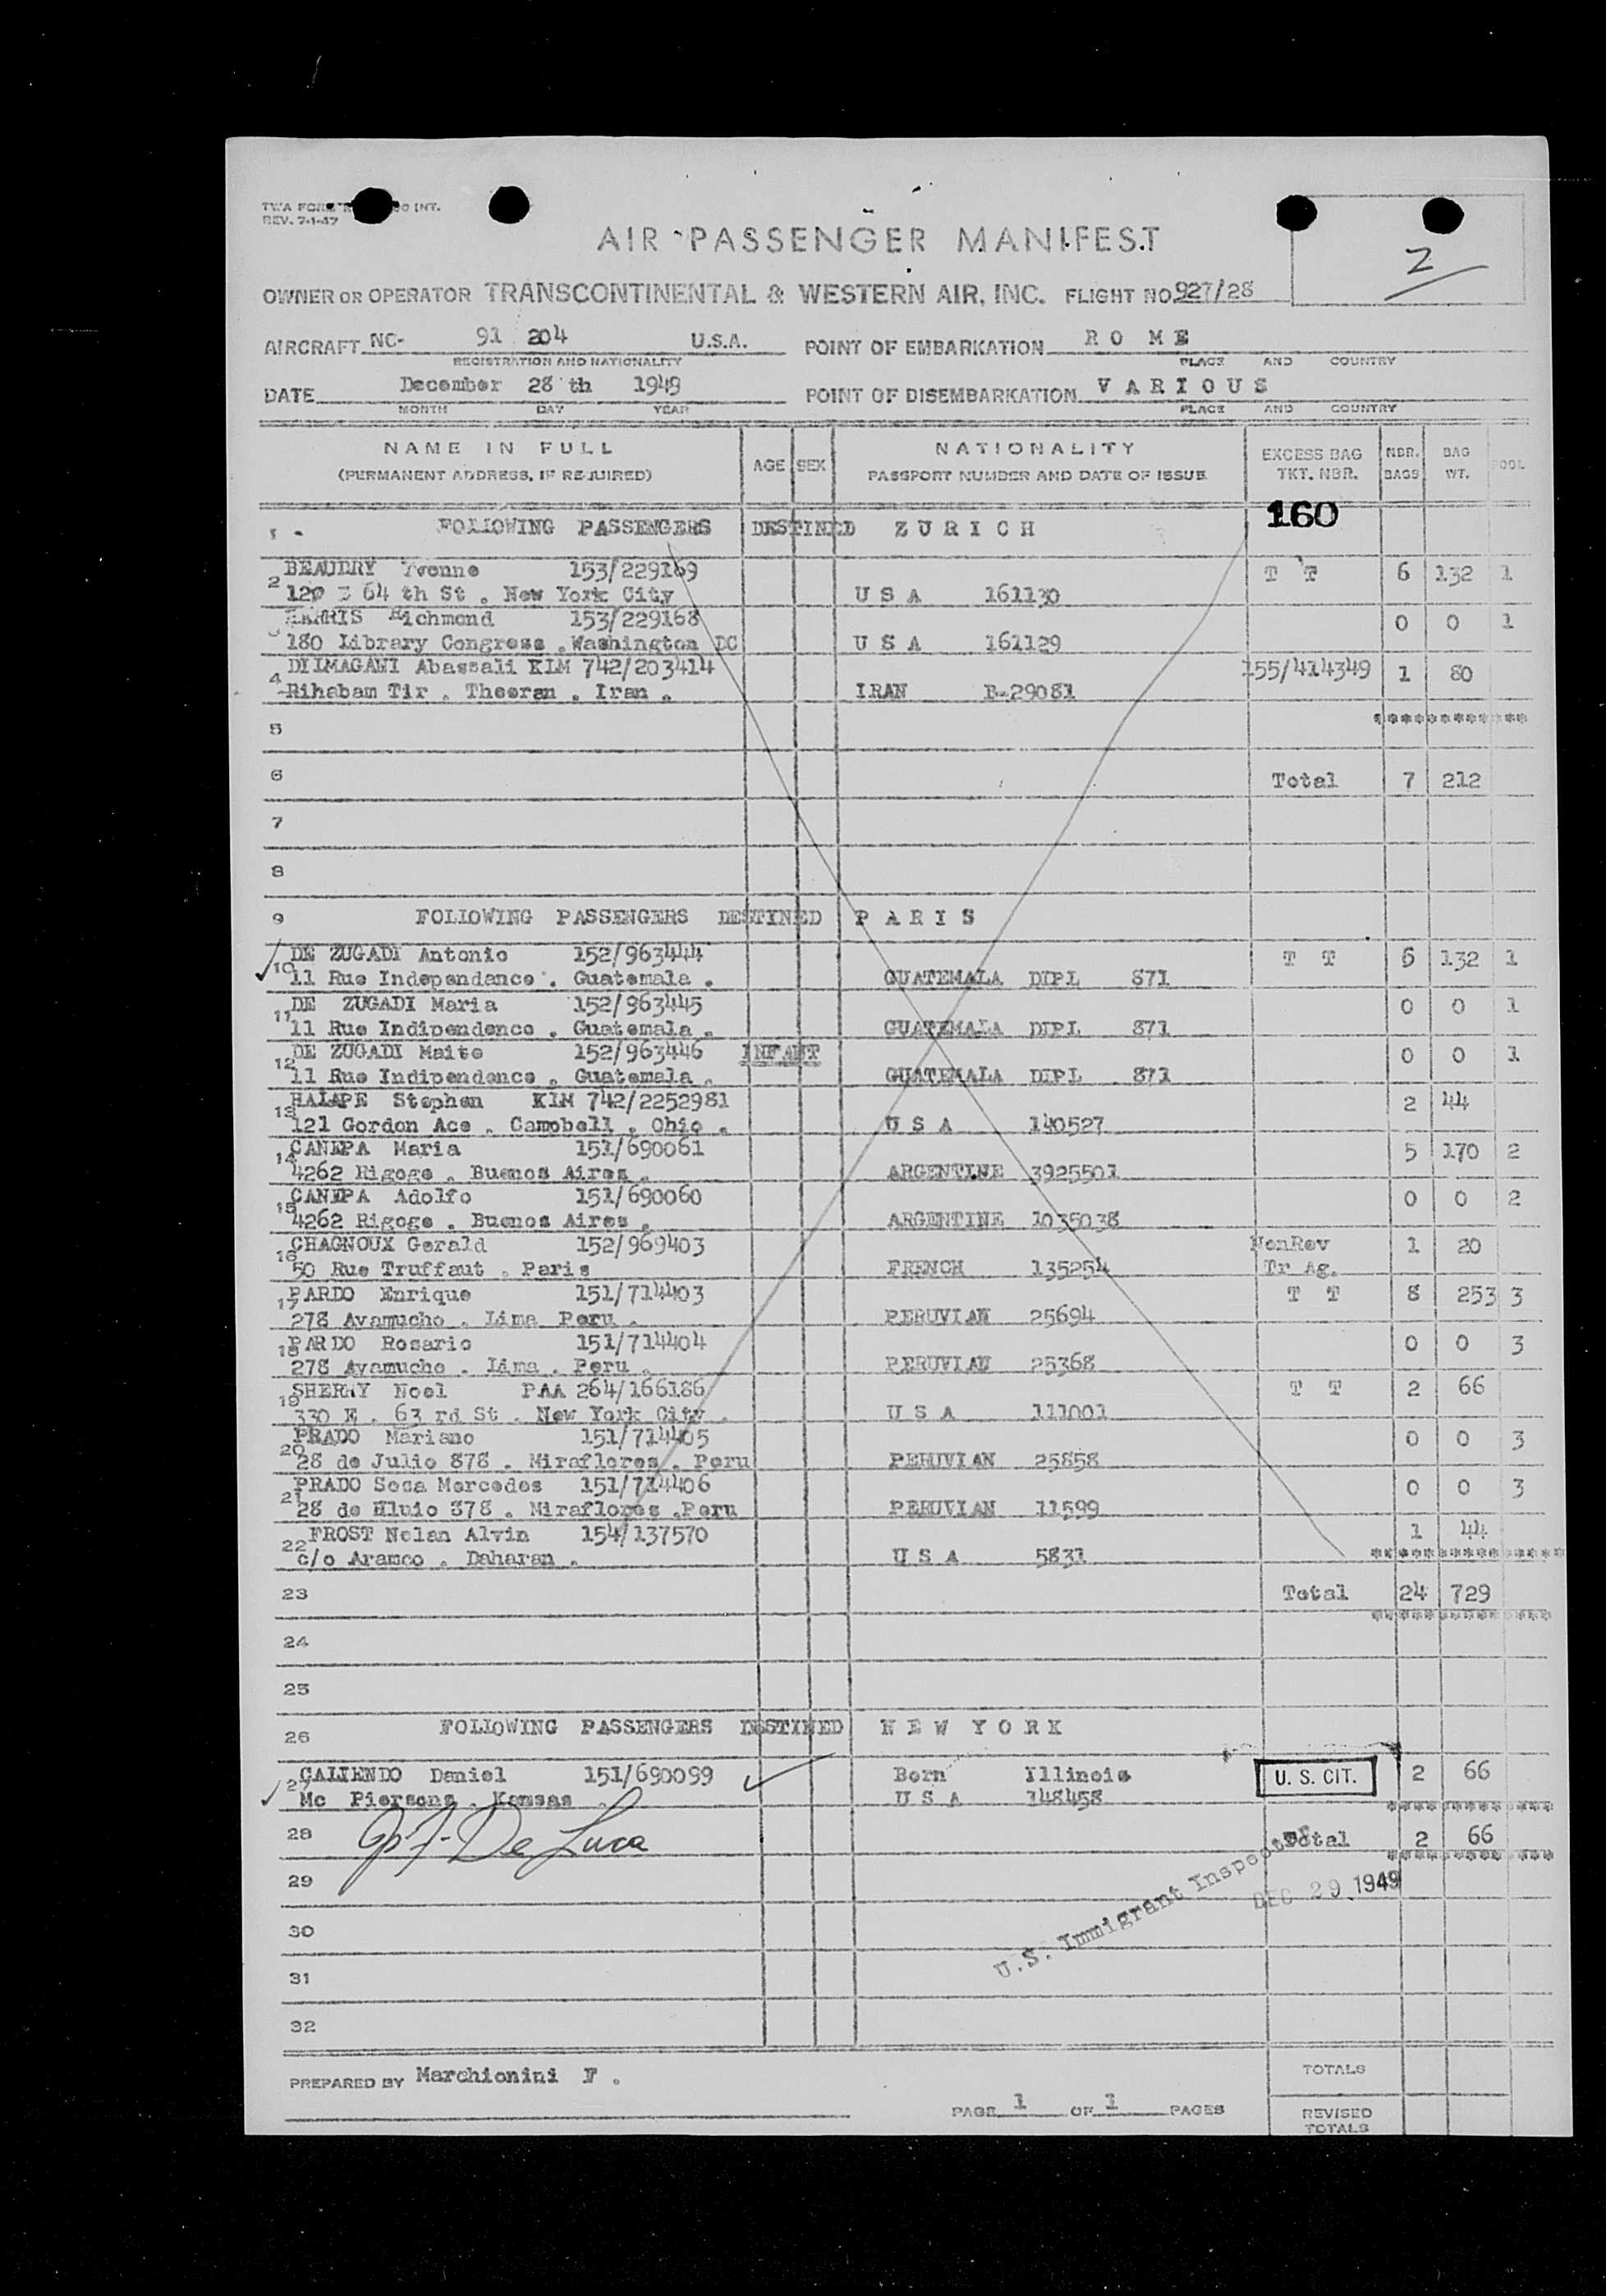 REV. 7-1-47
AIR PASSENGER MANIFEST
2
OWNER OR OPERATOR TRANSCONTINENTAL & WESTERN AIR, INC. FLIGHT NO 927/28
AIRCRAFT NC- 91 204 U.S.A. POINT OF EMBARKATION R O M E
REGISTRATION AND NATIONALITY PLACE AND COUNTRY
DATE December 28 th 1949 POINT OF DISEMBARKATION V A R I O U S
MONTH DAY YEAR PLACE AND COUNTRY
NAME IN FULL AGE SEX NATIONALITY EXCESS BAG NBR. BAG POOL
(PERMANENT ADDRESS, IF REQUIRED) PASSPORT NUMBER AND DATE OF ISSUE TKT. NBR. BAGS WT.
160
FOLLOWING PASSENGERS DESTINED Z U R I C H
BEAUDRY Yvonne 153/229169 T T 6 132 1
2 E 64 th St . New York City U S A 161130
HARRIS Richmond 153/229168 0 0 1
180 Library Congress .Washington DC U S A 161129
Abassali KLM 742/203414 155/414349 1 80
4 Rihabam Tir . Theeran . Iran . IRAN B-29081
5 ************
6 Total 7 212
7
8
9 FOLLOWING PASSENGERS DESTINED P A R I S
DE ZUGADI Antonio 152/963444 T T 6 132 1
10 11 Rue Independance . Guatemala . GUATEMALA DIPL 871
DE ZUGADI Maria 152/963445 0 0 1
11 11 Rue Indipendence . Guatemala . GUATEMALA DIPL 871
DE ZUGADI Maite 152/963446 INFANT 0 0 1
12 11 Rue Indipendence . Guatemala . GUATEMALA DIPL 871
HALAPE Stephen KLM 742/2252981 2 44
13 121 Gordon Ace . Campbell . Ohio . U S A 140527
CANEPA Maria 151/690061 5 170 2
14 4262 Rigoge . Buenos Aires . ARGENTINE 3925501
CANEPA Adolfo 151/690060 0 0 2
15 4262 Rigoge . Buenos Aires . ARGENTINE 1035038
CHAGNOUX Gerald 152/969403 NonRev 1 20
16 50 Rue Truffaut . Paris FRENCH 135254 Tr Ag.
PARDO Enrique 151/714403 T T 8 253 3
17 278 Avamucho . Lima Peru . PERUVIAN 25694
PARDO Rosario 151/714404 0 0 3
18 278 Avamucho . Lima . Peru . PERUVIAN 25368
Noel PAA 264/166186 T T 2 66
19 330 E . 63 rd St . New York City . U S A 111001
PRADO Mariano 151/714405 0 0 3
20 28 de Julio 878 . Miraflores . Peru PERUVIAN 25858
PRADO Sosa Mercedes 151/714406 0 0 3
21 28 de Hluio 878 . Miraflores .Peru PERUVIAN 11599
FROST Nolan Alvin 154/137570 1 44
22 c/o Aramco . Daharan . U S A 5831 ************
23 Total 24 729
24
25
26 FOLLOWING PASSENGERS DESTINED N E W Y O R K
CALIENDO Daniel 151/690099 Born Illinois U. S. CIT. 2 66
27 Mc Piersons . Kansas . U S A 148458
28 De Luca Total 2 66
29 U.S. Immigrant Inspector DEC 29 1949
30
31
32
PREPARED BY Marchionini F . TOTALS
PAGE 1 OF 1 PAGES REVISED TOTALS